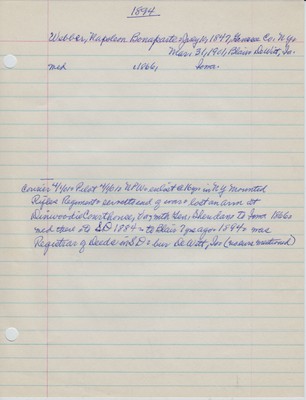 1894
Webber, Napoleon Bonaparte, May 10, 1847, Genesee Co. N.Y.
Mar. 31, 1901, Blair DeWitt, Io.
med c1866, Iowa.
Courier 4/4/01 Pilot 4/4/01 NPW enlist @ 16 yrs in N.Y. Mounted
Rifles Regiment - served to end of war & lost an arm at
Dinwoodie Courthouse, Va, with Gen. Sheridan - to Iowa 1866 -
med there - to SD 1884 - to Blair 7 yrs ago - 1894 - was
Registrar of Deeds in SD & bur DeWitt, Ia (no wife mentioned)